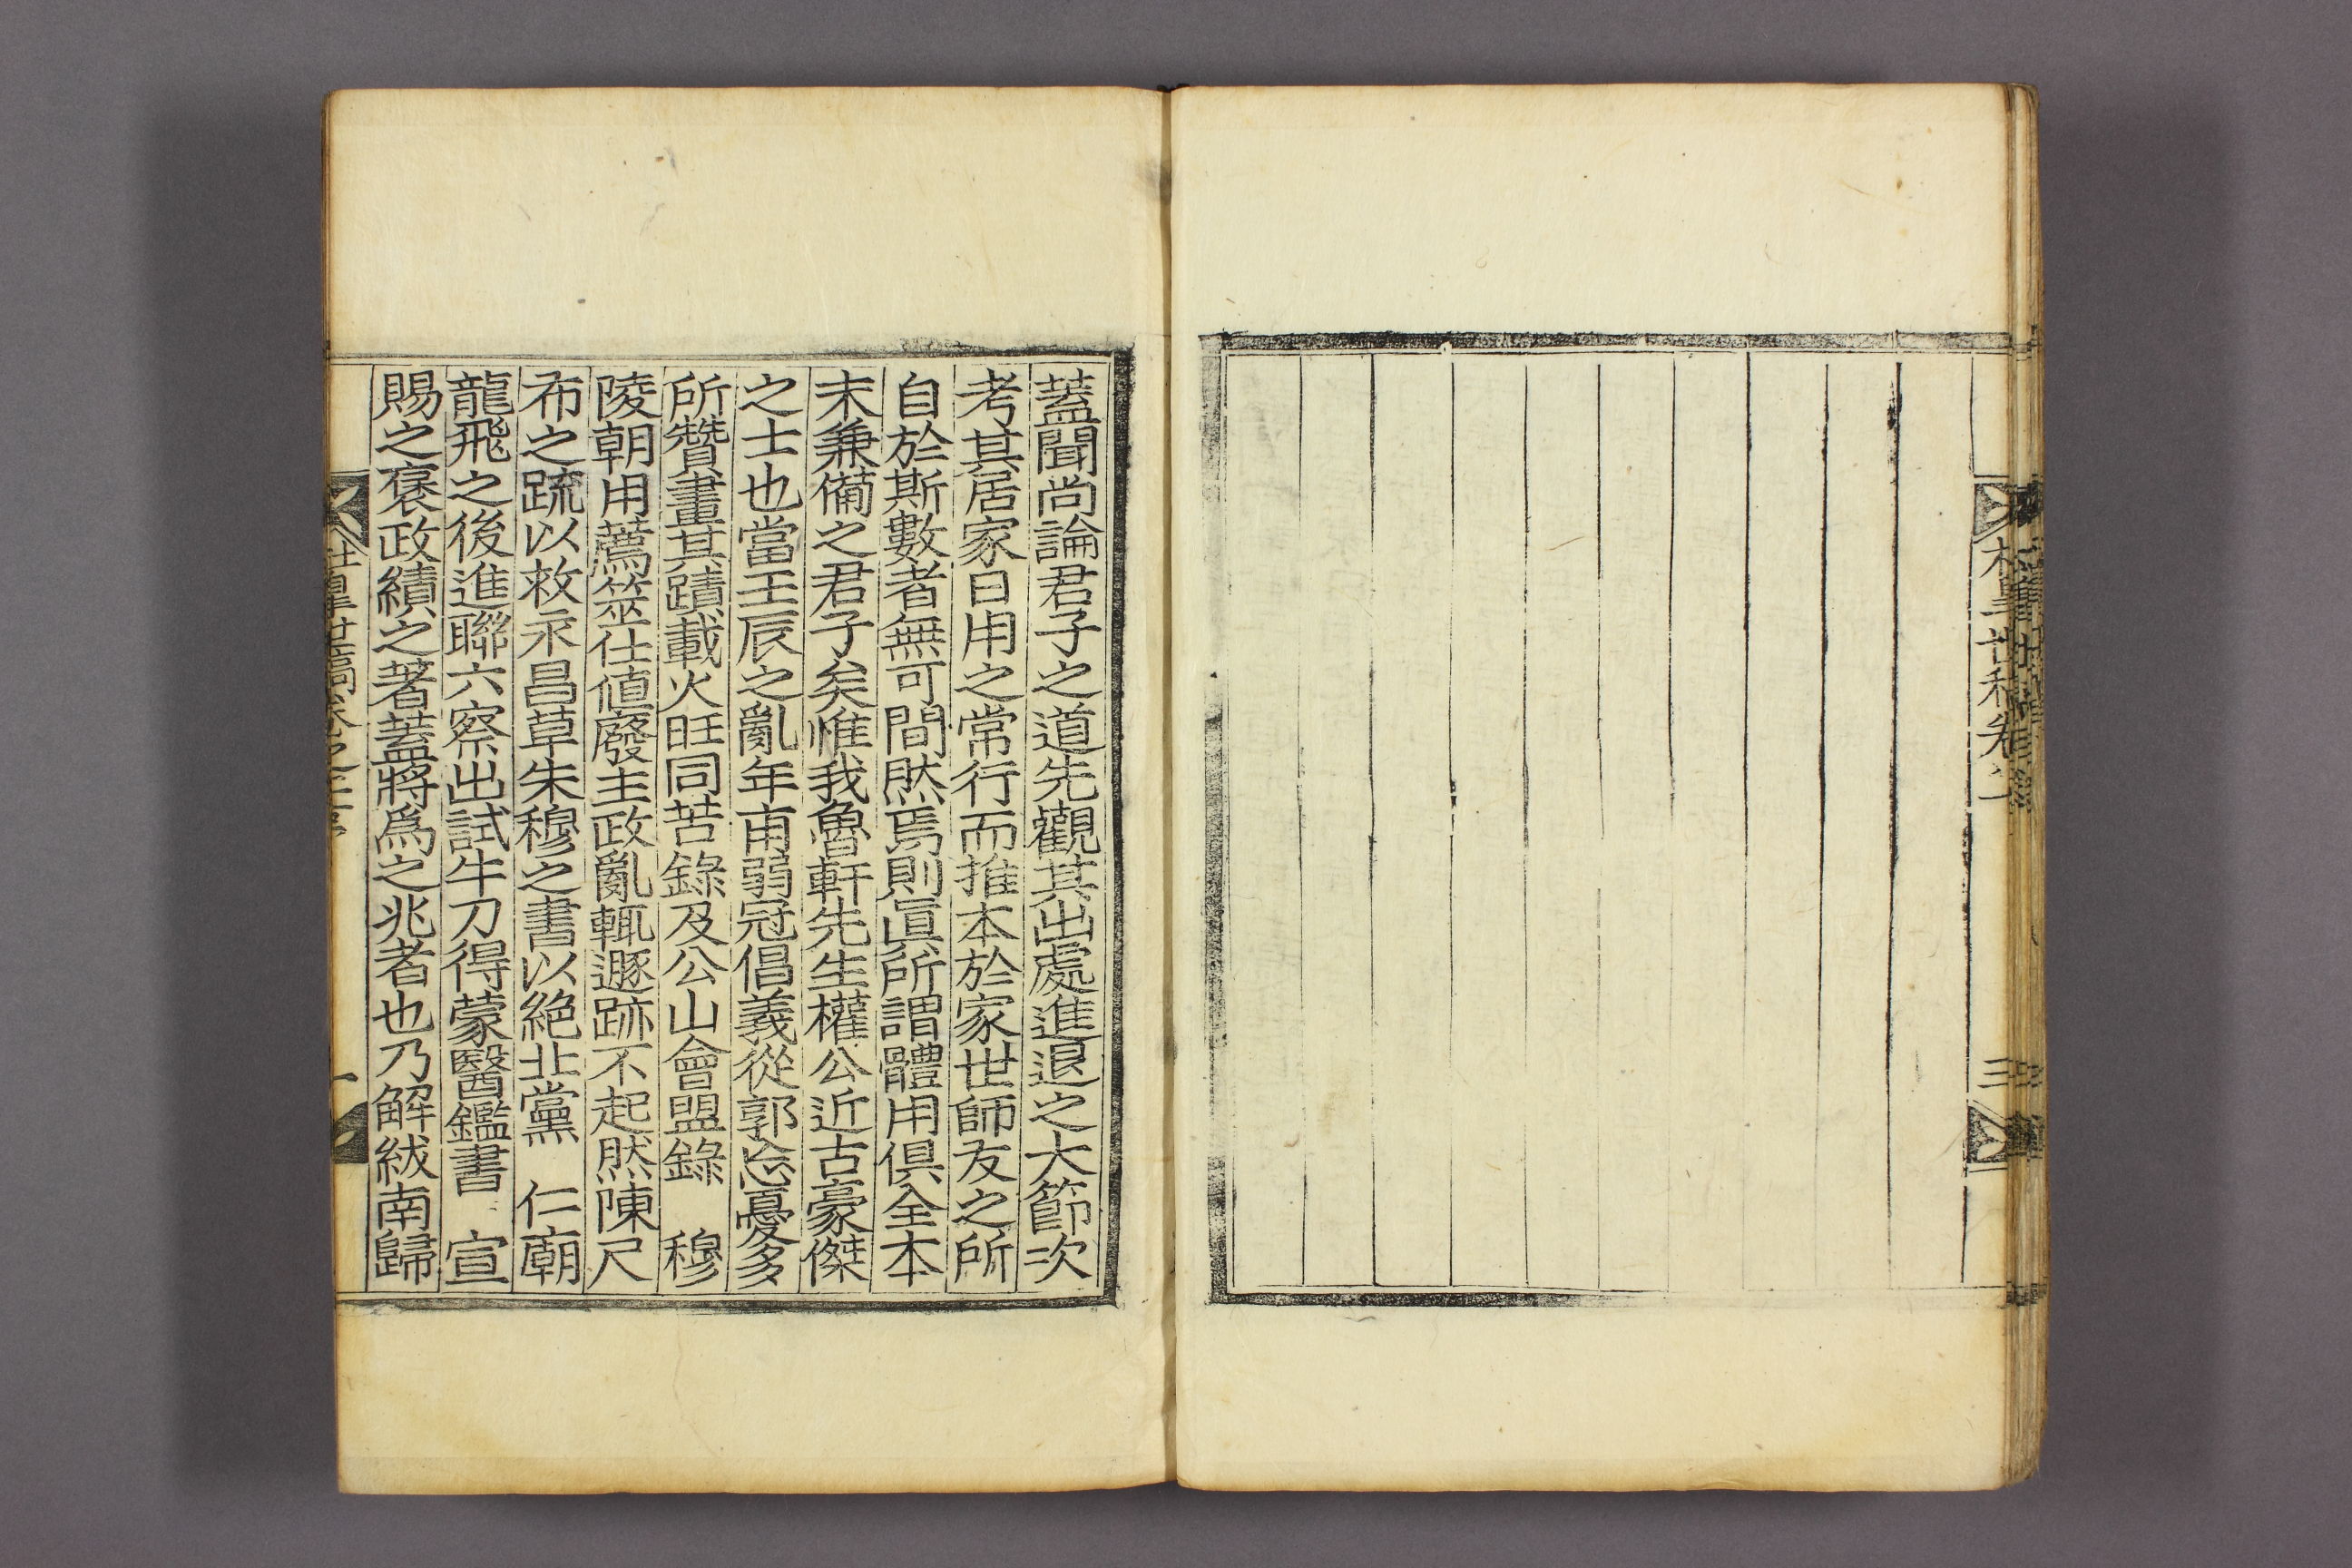 三
蓋聞尙論君子之道先觀其出處進退之大節次
考其居家日用之常行而推本於家世師友之所
自於斯數者無可間然焉則眞所謂體用俱全本
末兼備之君子矣惟我魯軒先生權公近古豪傑
之士也當壬辰之亂年甫弱冠倡義從郭忘憂多
所贊畫其蹟載火旺同苦錄及公山會盟錄　穆
陵朝用薦筮仕値廢主政亂輒遯跡不起然陳尺
布之䟽以救永昌草朱穆之書以絶北黨　仁廟
龍飛之後進聯六察出試牛刀得蒙醫鑑書　宣
賜之褒政績之著蓋將爲之兆者也乃解紱南歸
一